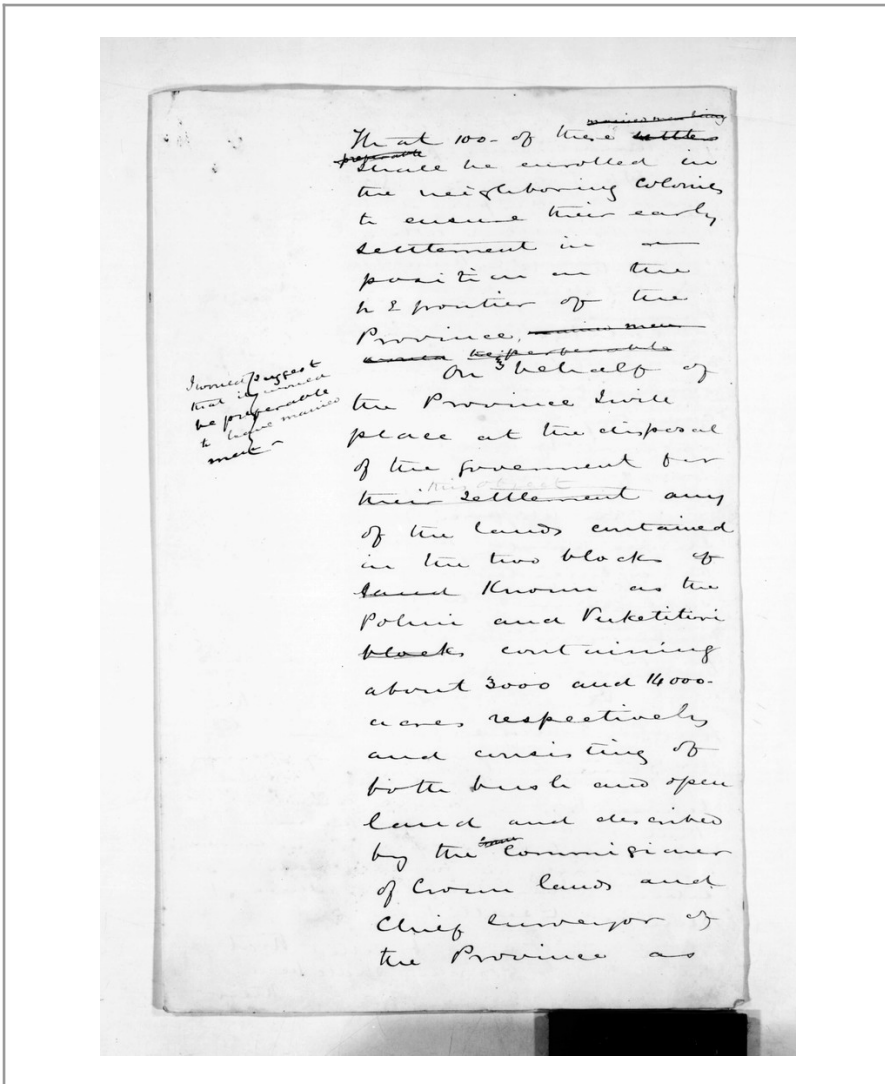 married men being
That 100- of these settlers
preferable
shall be enrolled in
the neighboring Colonies
to ensure their early
settlement in a
position on the
N E frontier of the
Province, married men
would be preferable
I would suggest
that it would
be preferable
to have married
men -
On behalf of
the Province I will
place at the disposal
of the government for
this object
their settlement any
of the lands contained
in the two blocks of
land Known as the
Pohui and Puketitiri
blocks containing
about 3000 and 14000-
acres respectively
and consisting of
both bush and open
land and described
by the Commissioner
of Crown lands and
Chief Surveyor of
the Province as